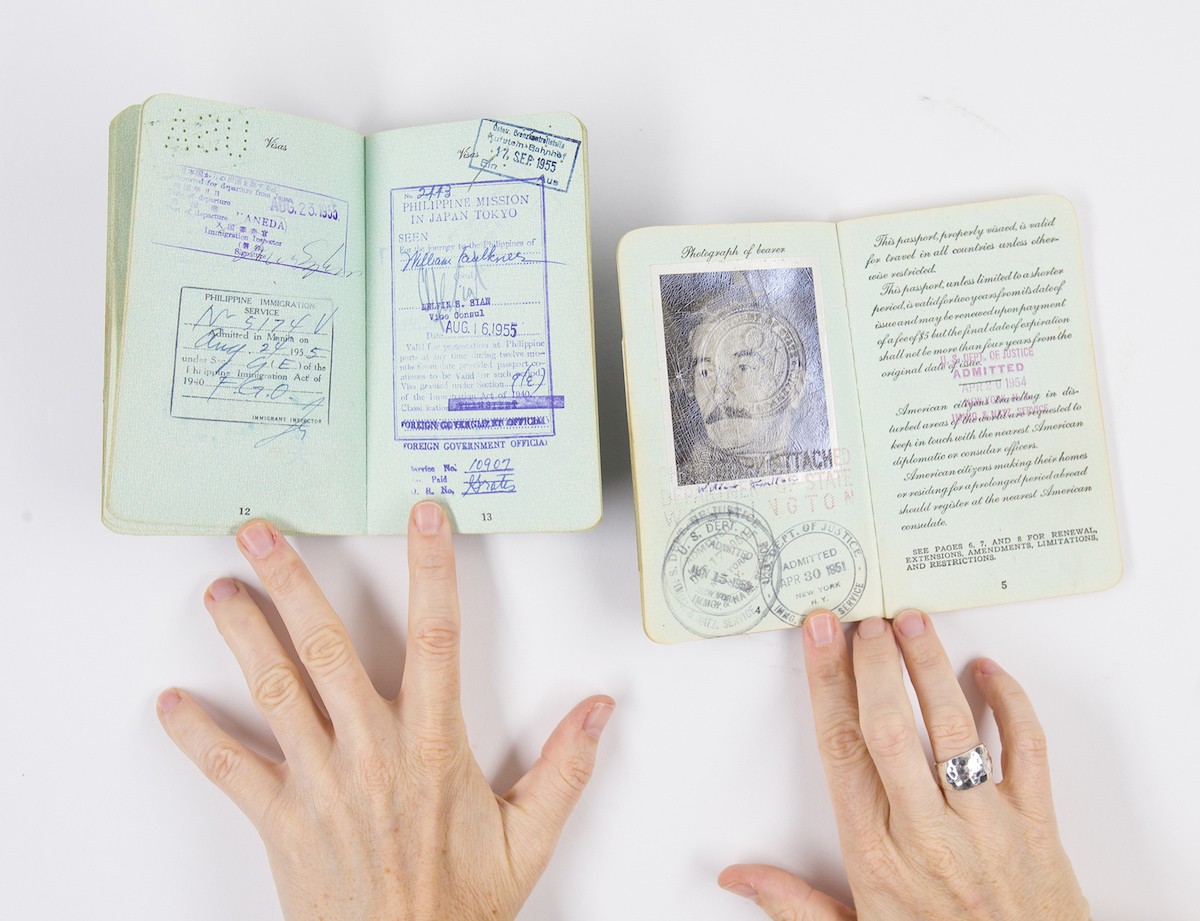 USA
Visas
AUG. 23. 1955
HANEDA)
Immigration Inspector
Signature
PHILIPPINE IMMIGRATION
SERVICE
No 5174 V
Admitted in Manila on
Aug. 24 1955
under S 9(E) of the
Philippine Immigration Act of
1940
F.G.O.
IMMIGRANT INSPECTOR
12
Visas
Kufstein-Bahnhof
17. SEP. 1955
Ein Aus
No. 2443
PHILIPPINE MISSION
IN JAPAN TOKYO
SEEN
For the journey to the Philippines of
William Faulkner
Vice Consul
Date AUG. 16.1955
Valid for presentation at Philippine
ports at any time during twelve mo-
nths from date provided passport co-
ntinues to be valid for such period.
Visa granted under Section 9(E)
of the Immigration Act of 1940
Classification
FOREIGN GOVERNMENT OFFICIAL
FOREIGN GOVERNMENT OFFICIAL
Service No. 10907
Paid Gratis
O. R. No.
13
Photograph of bearer
ATTACHED
DEPARTMENT OF STATE
WASHINGTON
William Faulkner
U. S. DEPT. OF JUSTICE
ADMITTED
NEW YORK
IMM. & NATZ. SERVICE
DEPT. OF JUSTICE
ADMITTED
APR 30 1951
NEW YORK
N.Y.
IMMG. SERVICE
4
This passport, properly visaed, is valid
for travel in all countries unless other-
wise restricted.
This passport, unless limited to a shorter
period, is valid for two years from its date of
issue and may be renewed upon payment
of a fee of $5 but the final date of expiration
shall not be more than four years from the
original date of issue.
U. S. DEPT. OF JUSTICE
ADMITTED
APR 20 1954
IMMG. & NATZ. SERVICE
American citizens traveling in dis-
turbed areas of the world are requested to
keep in touch with the nearest American
diplomatic or consular officers.
American citizens making their homes
or residing for a prolonged period abroad
should register at the nearest American
consulate.
SEE PAGES 6, 7, AND 8 FOR RENEWAL,
EXTENSIONS, AMENDMENTS, LIMITATIONS,
AND RESTRICTIONS.
5